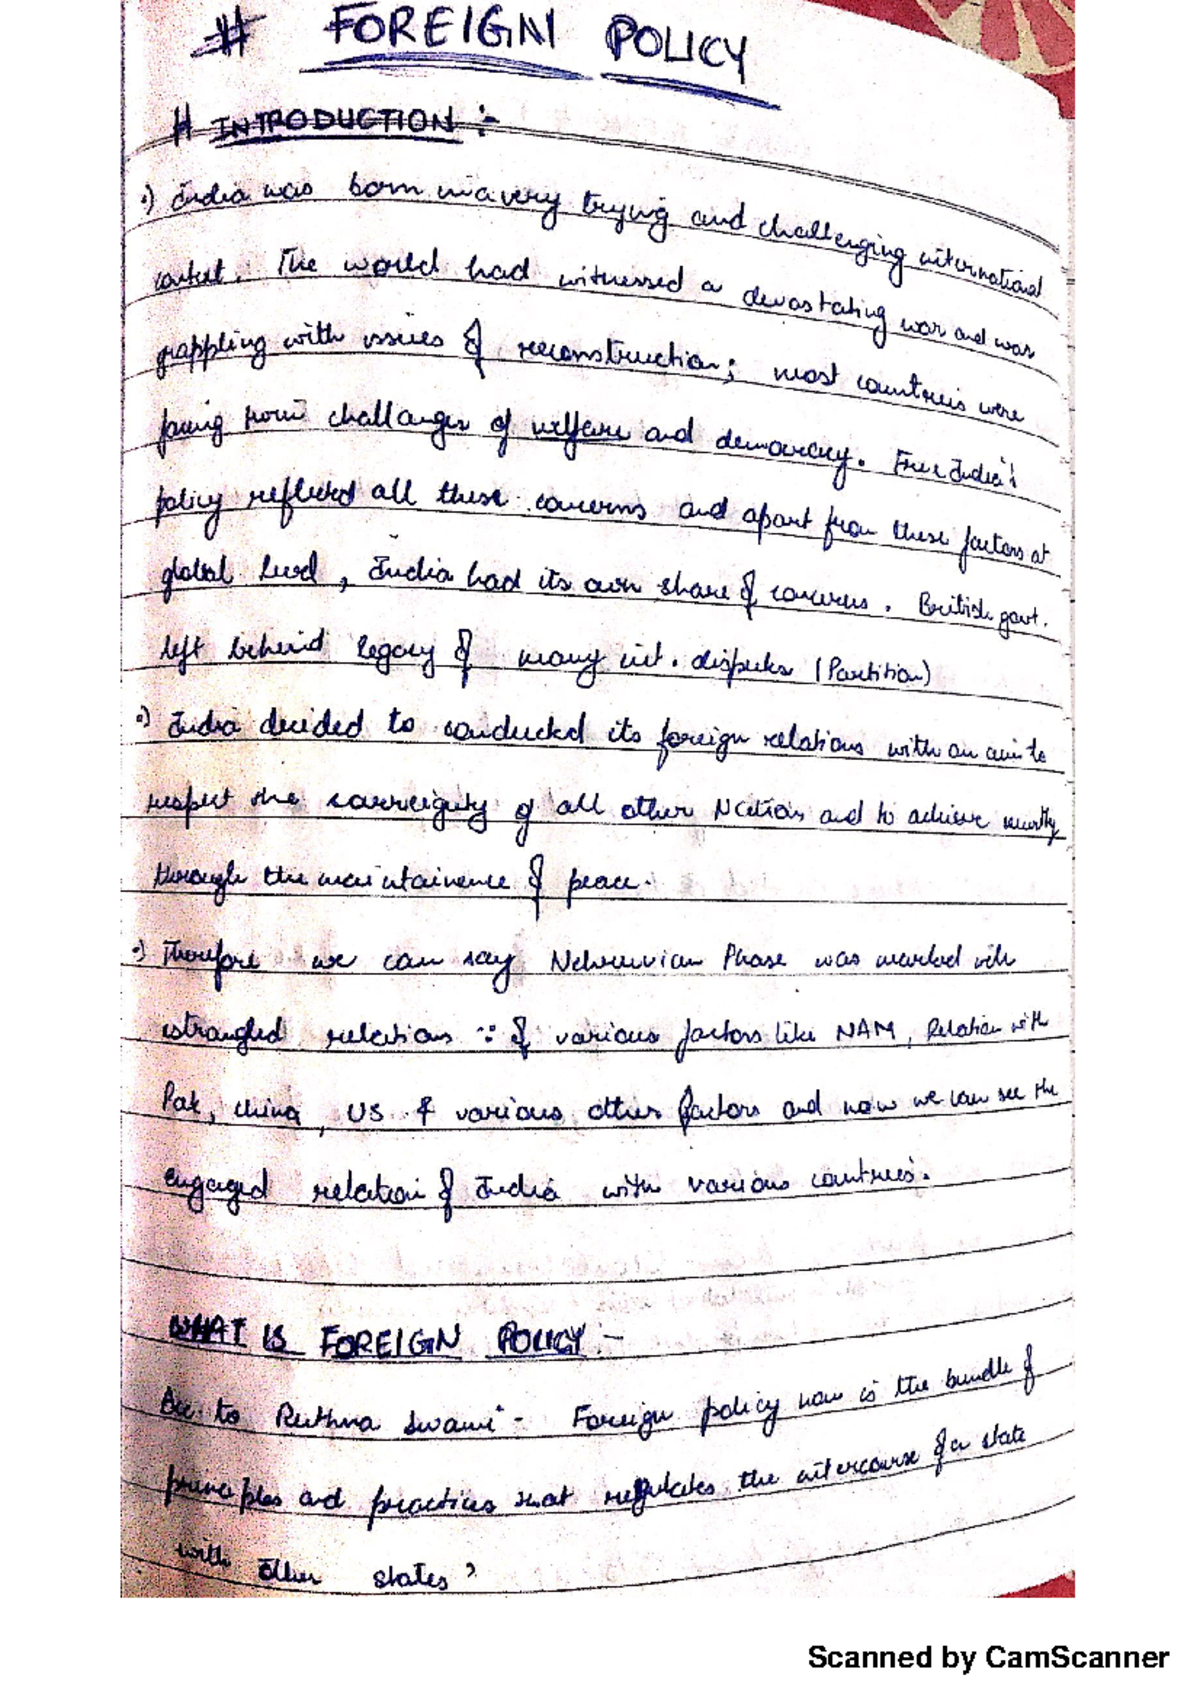 # FOREIGN POLICY
# INTRODUCTION :-
•) India was born in a very trying and challenging international
context. The world had witnessed a devastating war and was
grappling with issues of reconstruction; most countries were
facing from challanges of welfare and democracy. Free India's
policy reflected all these concerns and apart from these factors at
global level, India had its own share of concerns. British govt.
left behind legacy of many int. disputes (Partition)
•) India decided to conducted its foreign relations with an aim to
respect the sovereignty of all other Nations and to achieve security
through the maintainence of peace.
•) Therefore we can say Nehruvian Phase was marked with
estrangled relations ∵ of various factors like NAM, Relation with
Pak, china, US & various other factors and now we can see the
engaged relation of India with various countries.
WHAT IS FOREIGN POLICY :-
Acc. to Ruthna Swami - Foreign policy now is the bundle of
principles and practices that regulates the intercourse of a state
with other states'
Scanned by CamScanner